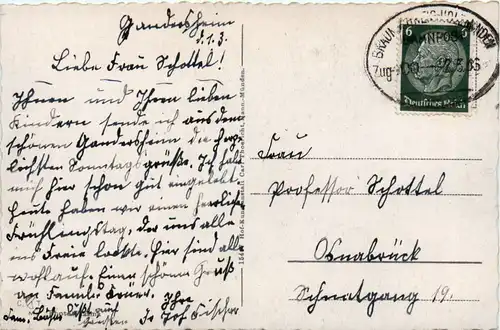 Gandersheim
d. 1. 3.
Liebe Frau Schottel!
Ihnen und Ihren lieben
Kindern sende ich aus dem
schönen Gandersheim die herz-
lichsten Sonntagsgrüße. Ich habe
mich hier schon gut eingelebt.
Heute haben wir einen herrlichen
Frühlingstag, der uns alle
ins Freie lockte. Hier sind alle
wohlauf. Einen schönen Gruß
an Familie
Ihre
Fischer
6 6
Deutsches Reich
BAHNPOST
Zug
Frau
Professor Schottel
Osnabrück
Schnatgang 19.